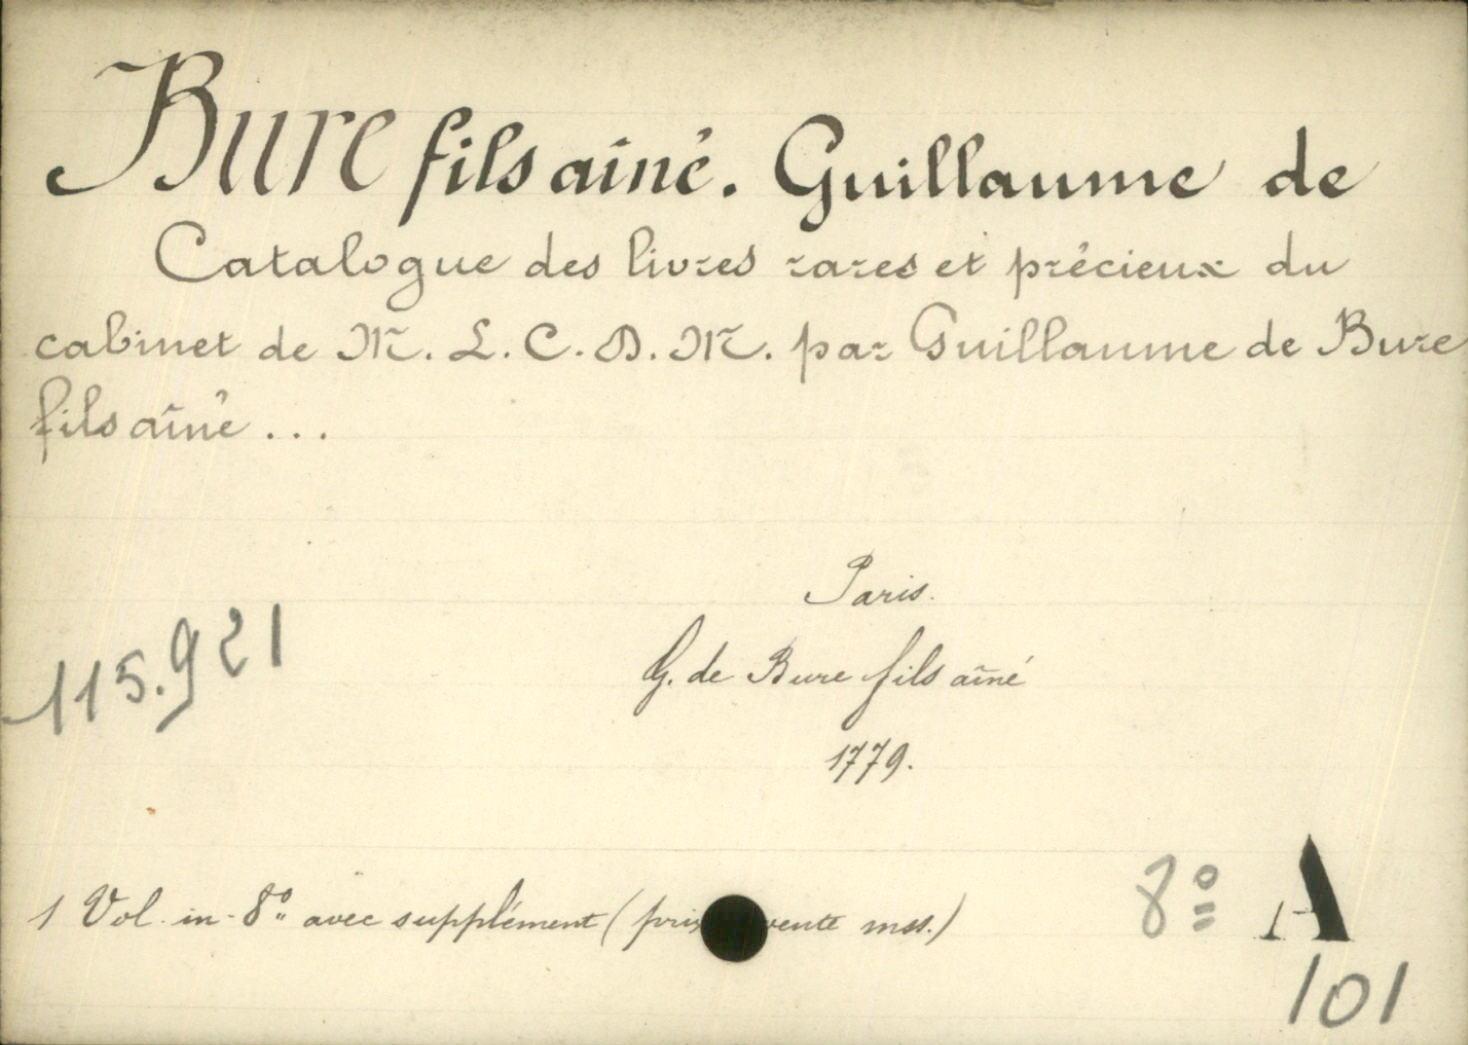 Bure fils aîné. Guillaume de
Catalogue des livres rares et précieux du
cabinet de M. L. C. D. M. par Guillaume de Bure
fils aîné ...
Paris.
G. de Bure fils aîné
1779.
115.921
1 Vol. in-8º avec supplément (prix vente mss.)
8º A
101